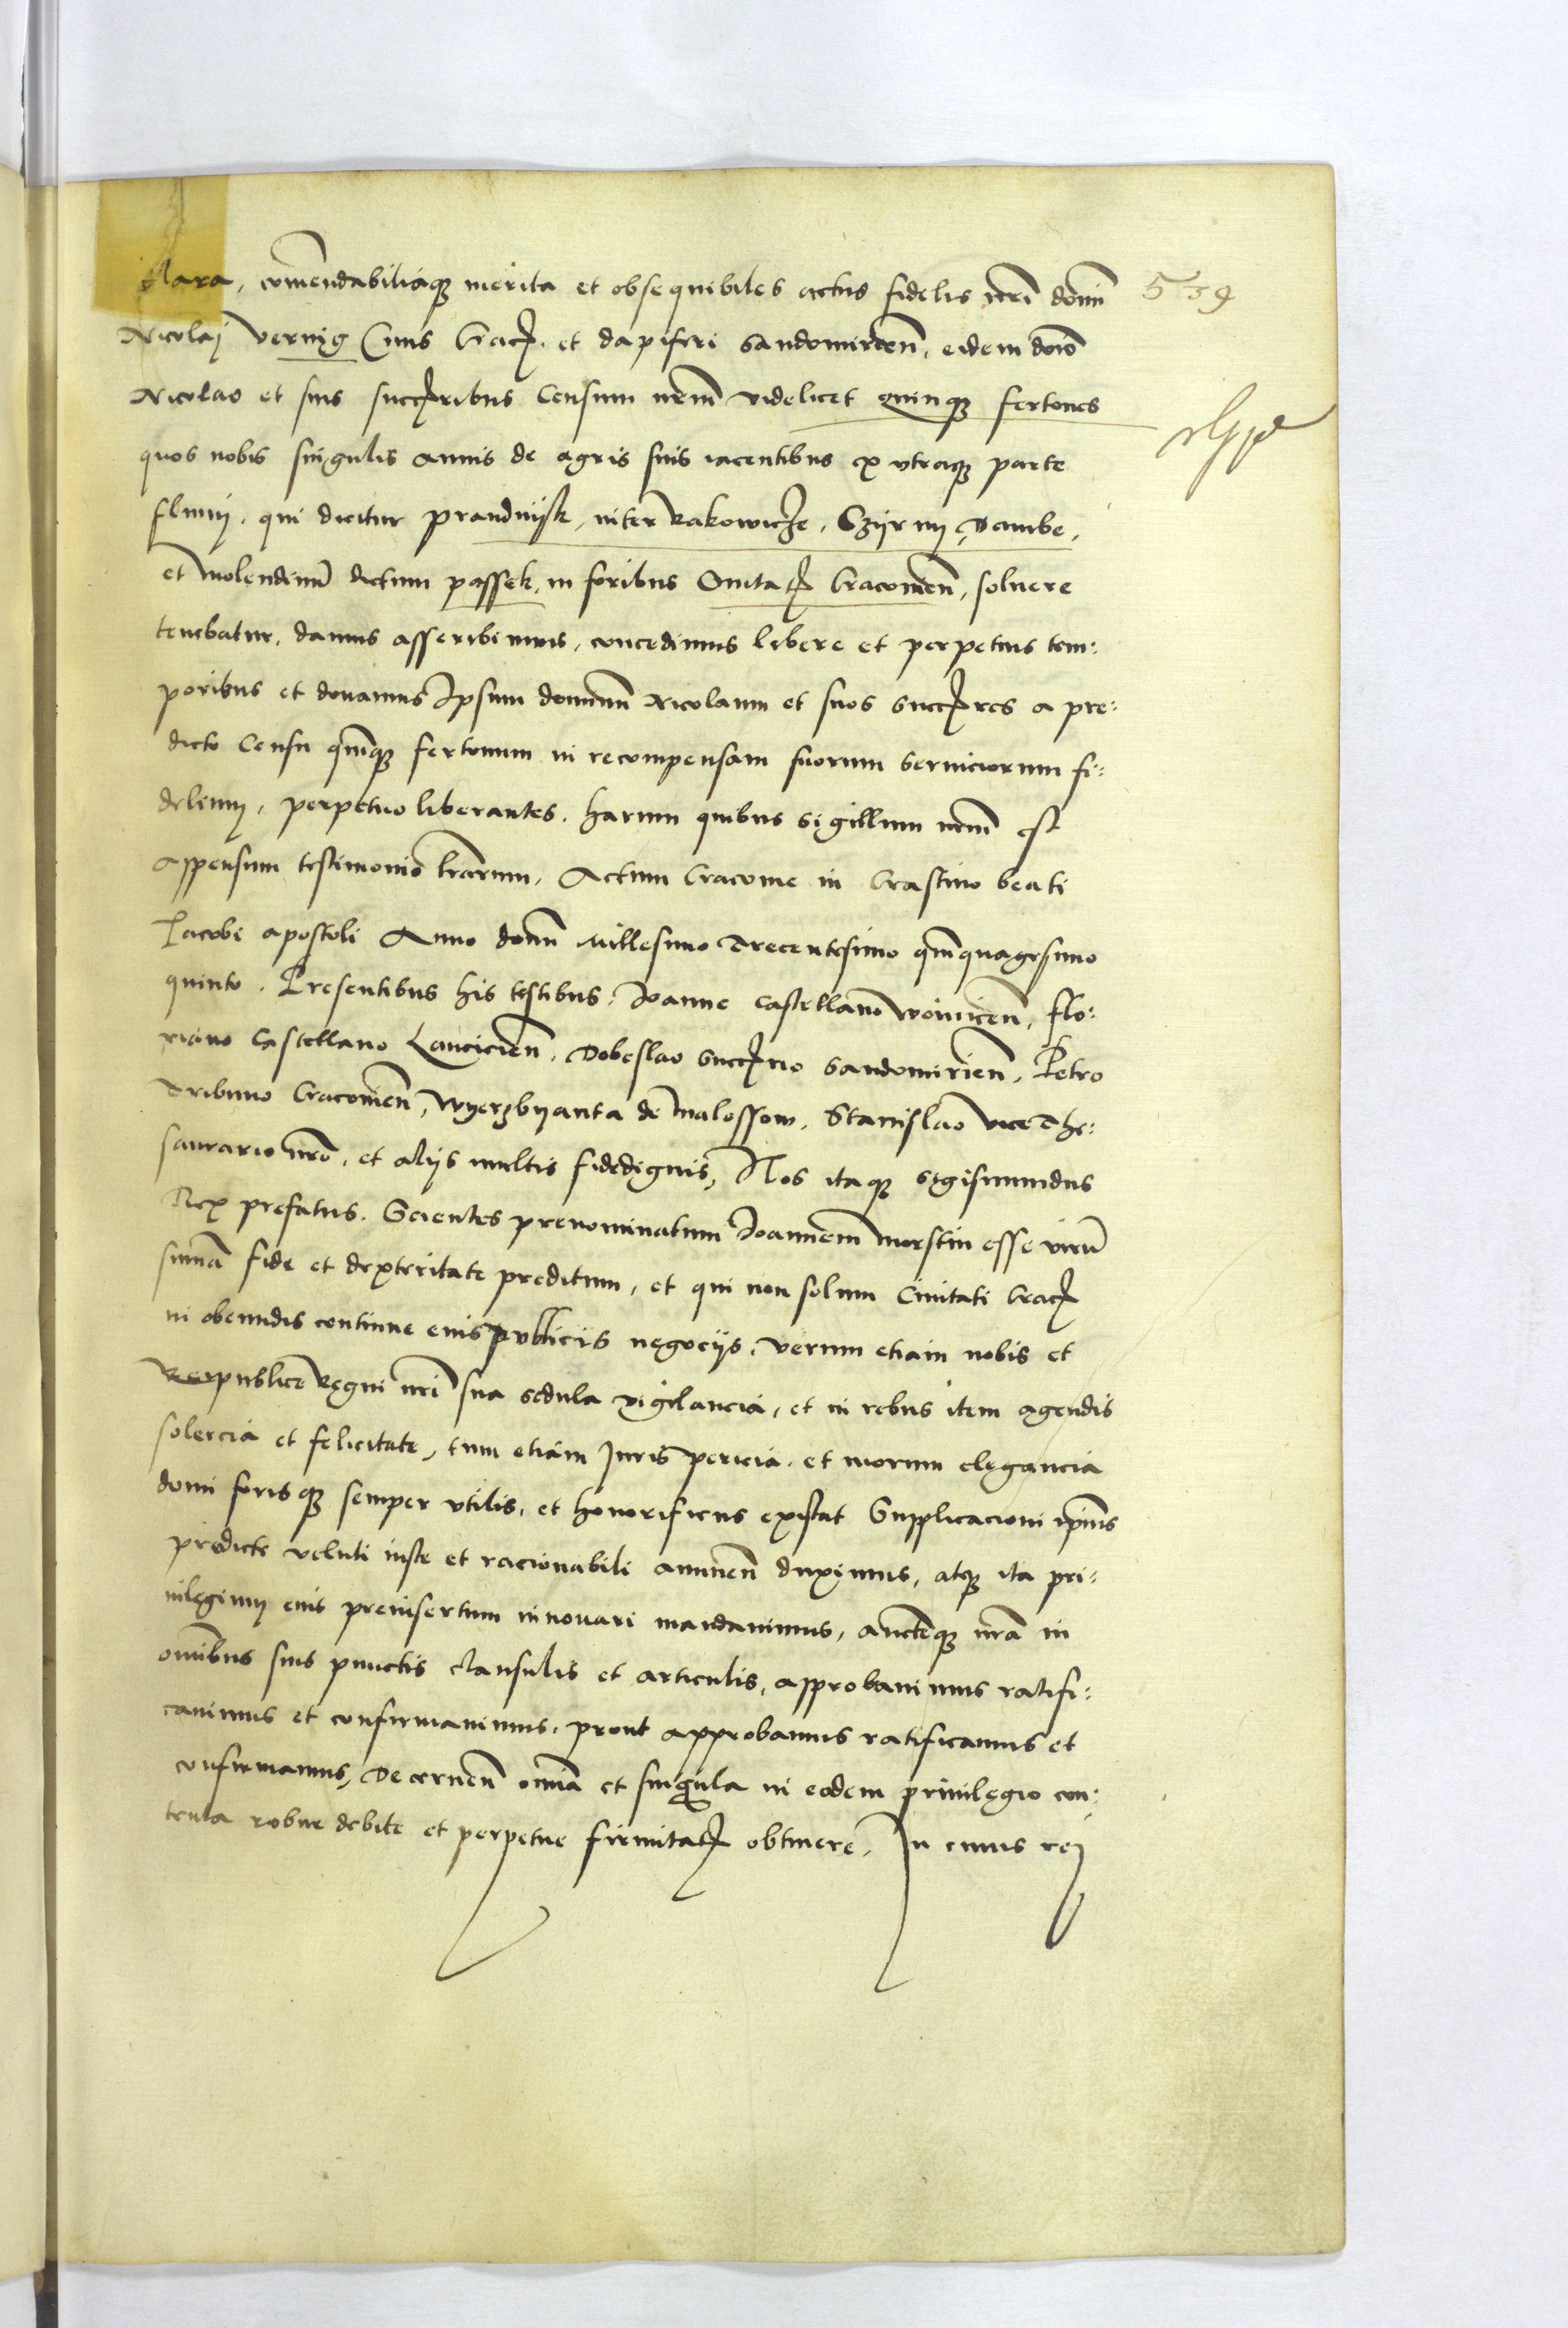 clara, comendabiliaq̃ merita et obsequibiles actus fidelis nrĩ domĩ 539
Nicolaj Vernig Ciuis Crac̃. et dapiferi Sandomircen̄, eidem domō
Nicolao et suis succ̃ribus Censum nrm̄ videlicet quinq̃ fertones
quos nobis singulis annis de agris suis iacentibus ex vtraq̃ parte
fluuij, qui dicitur prandnijk, inter Rakowicze, Szijrnij, Dambe,
et molendinũ dictum passek, in foribus Ciuitat̃ Cracouien̄, soluere
tenebatur, damus asscribimus, concedimus libere et perpetuis tem:
poribus et donamus Ipsum dominũ Nicolaum et suos succ̃res a pre:
dicto Censu quinq̃ fertonum in recompensam suorum seruiciorum fi:
delium, perpetuo liberantes. harum quibus sigillum nrm̄ est
appensum testimonio lrarum. Actum Cracouie in Crastino beati
Iacobi apostoli Anno domĩ Millesimo Trecentesimo quinquagesimo
quinto. Presentibus his testibus. Ioanne castellano woinicen̄, flo:
riano Castellano Lancicien̄, Dobeslao Succ̃rio Sandomirien̄, Petro
Tribuno Cracouien̄, wyerzbyanta de Malossow, Stanislao vice The:
saurario nrõ, et alijs multis fidedignis, Nos itaq̃ Sigismundus
Rex prefatus. Scientes prenominatum Ioannem Morstin esse virũ
summa fide et dexteritate preditum, et qui non solum Ciuitati Crac̃
in obeundis continue eius publicis negocijs, verum etiam nobis et
Reipublice Regni nrĩ sua sedula vigilancia, et in rebus item agendis
solercia et felicitate, tum etiam Iuris pericia, et morum elegancia
domi forisq̃ semper vtilis, et honorificus existat Supplicacioni ipsius
predicte veluti iuste et racionabili annuen̄ duximus, atq̃ ita pri:
uilegium eius preinsertum innouari mandauimus, auct̃eq̃ nrã in
omĩbus suis punctis clausulis et articulis, approbauimus ratifi:
cauimus et confirmauimus, prout approbamus ratificamus et
confirmamus, Decernen̄ omĩa et singula in eodem priuilegio con:
tenta robur debite et perpetue firmitat̃ obtinere, In cuius rej